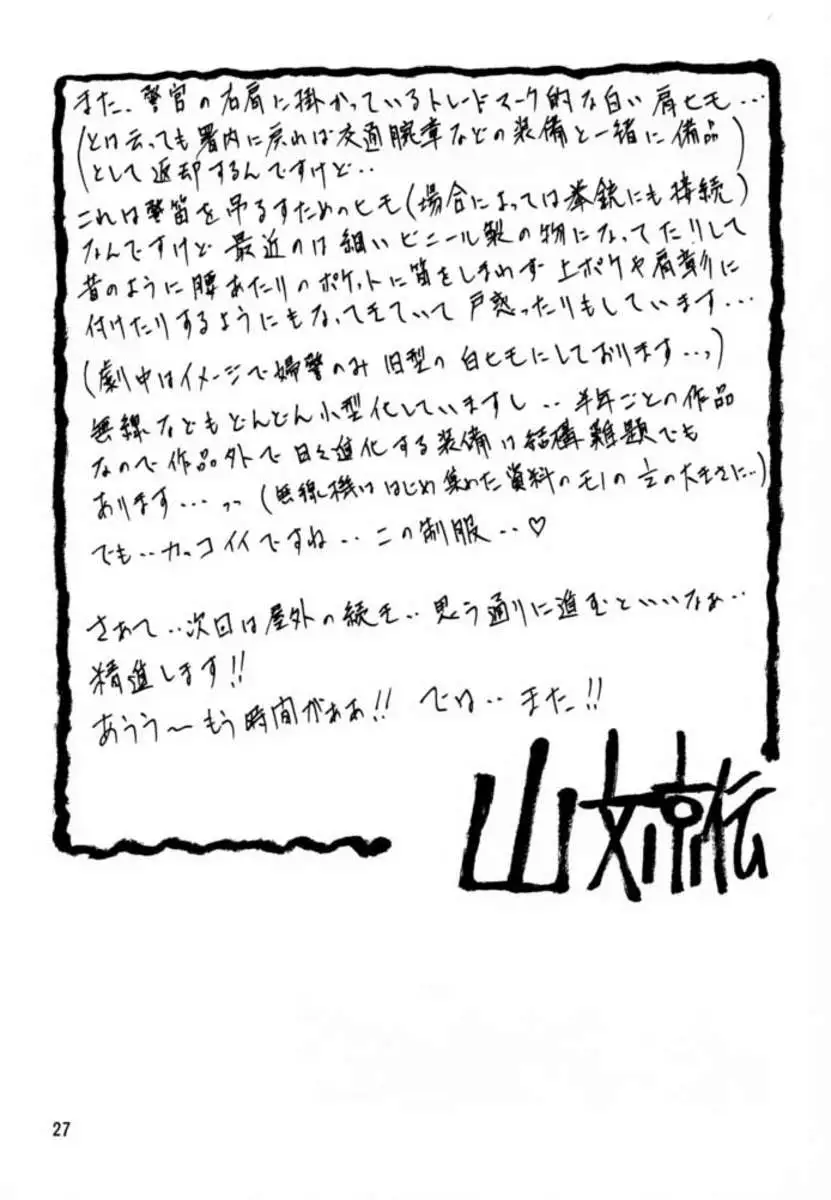 また、警官の右肩に掛かっているトレードマーク的な白い肩ヒモ…
(とは云っても署内に戻れば交通腕章などの装備と一緒に備品)
(として返却するんですけど‥)
これは警笛を吊るすためのヒモ(場合によっては拳銃にも接続)
なんですけど最近のは細いビニール製の物になってたりして
昔のように腰あたりのポケットに笛をしまわず上ポケや肩章に
付けたりするようにもなってきていて戸惑ったりもしています…
(劇中はイメージで婦警のみ旧型の白ヒモにしております…っ)
無線などもどんどん小型化していますし‥半年ごとの作品
なので作品外で日々進化する装備は結構難題でも
あります…っっ(無線機ははじめ集めた資料のモノの1/2の大きさに…)
でも‥カッコイイですね‥この制服‥♡
さあて‥次回は屋外の続き‥思う通りに進むといいなぁ‥
精進します!!
あうう〜もう時間がぁぁ!! では‥また!!
山文京伝
27